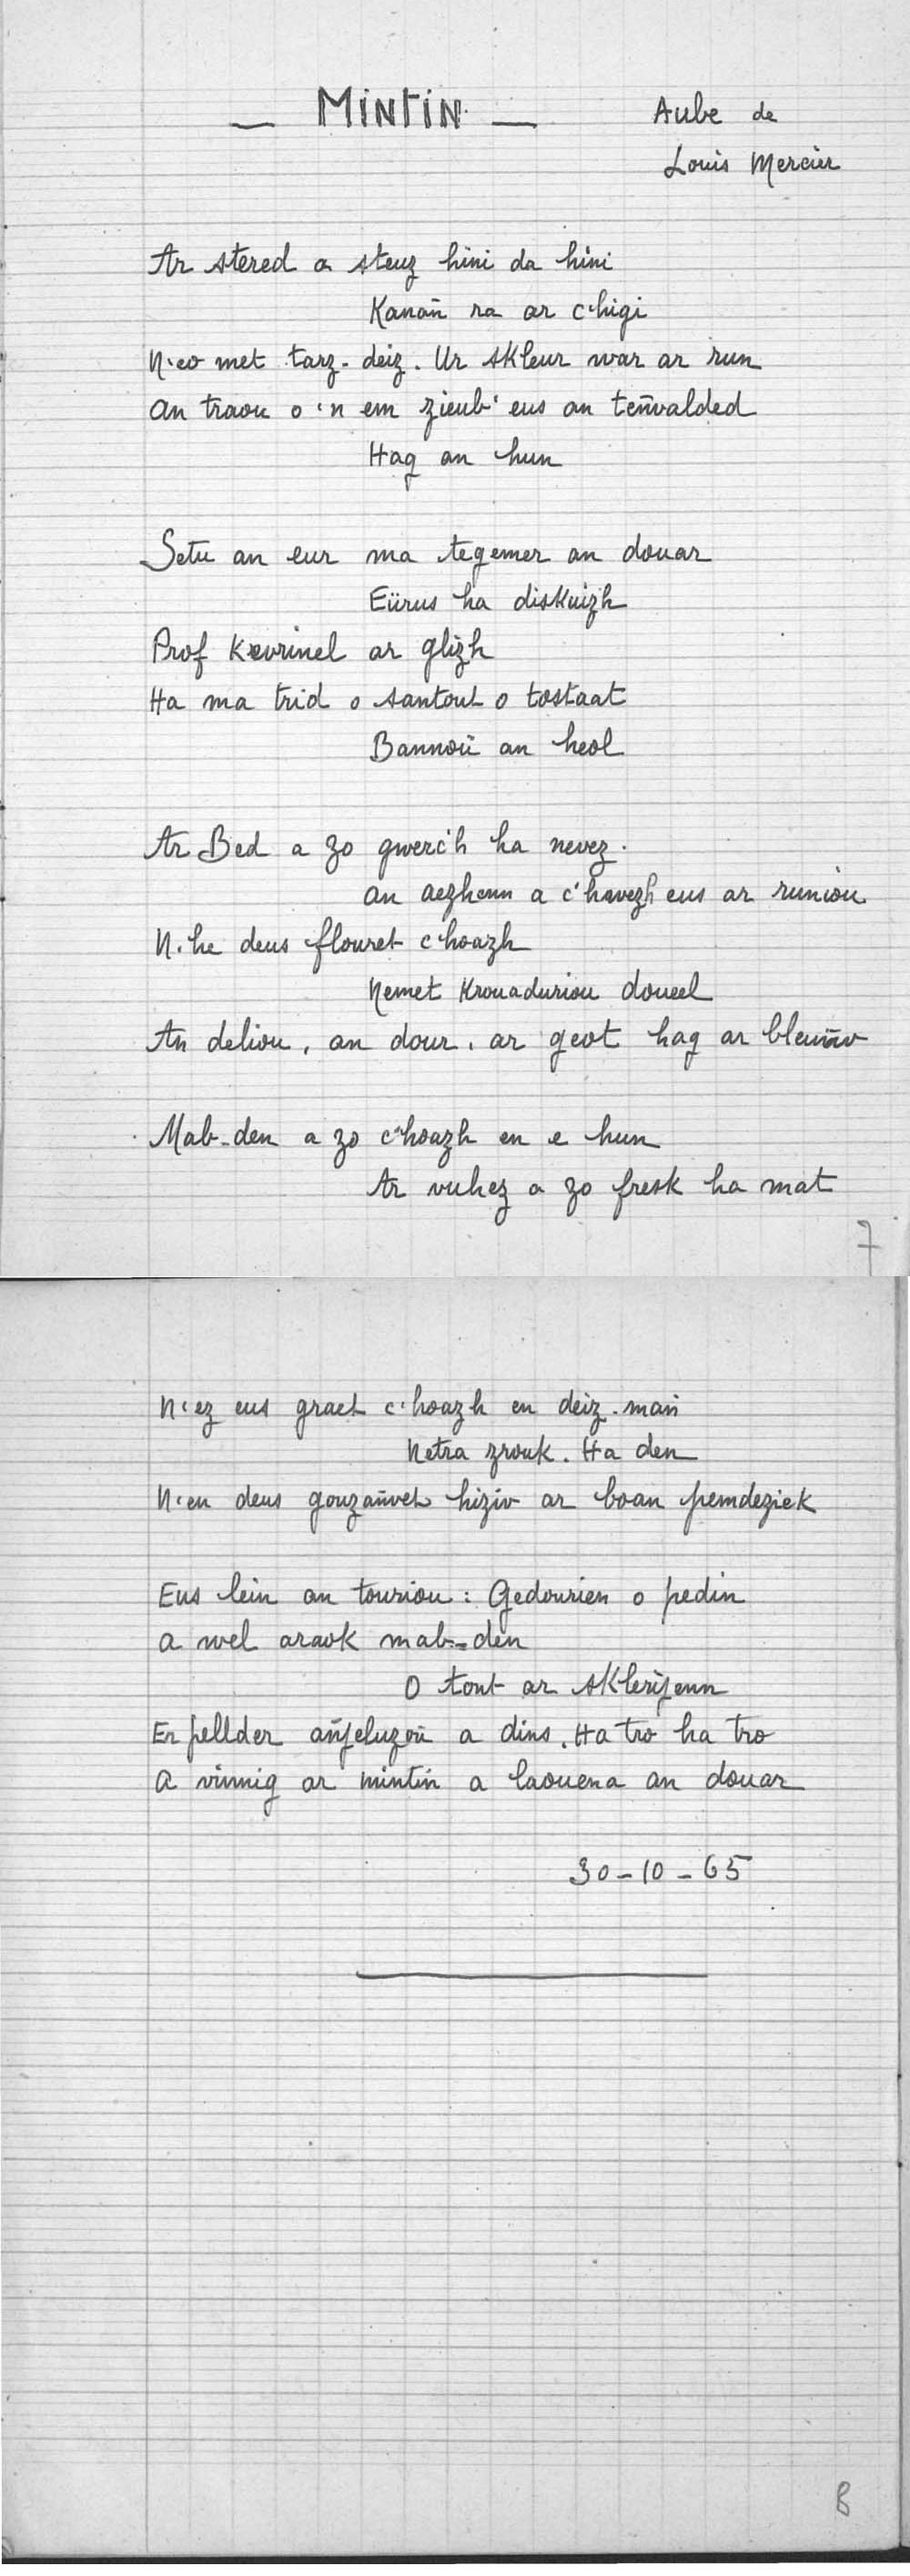 — MiNTiN —
Aube de
Louis Mercier
Ar stered a steuz hini da hini
Kanañ ra ar c'higi
N'eo met tarz-deiz. Ur skleur war ar run
An traou o 'n em zieub' eus an teñvalded
Hag an hun
Setu an eur ma tegemer an douar
Eürus ha diskuizh
Prof kevrinel ar glizh
Ha ma trid o santout o tostaat
Bannoù an heol
Ar Bed a zo gwerc'h ha nevez.
An aezhenn a c'hwezh eus ar runiou
N'he deus flouret c'hoazh
Nemet krouaduriou doueel
An deliou, an dour, ar geot hag ar bleuñv
Mab-den a zo c'hoazh en e hun
Ar vuhez a zo fresk ha mat
7
N'ez eus graet c'hoazh en deiz-mañ
Netra zrouk. Ha den
N'en deus gouzañvet hiziv ar boan pemdeziek
Eus lein an touriou: Gedourien o pedin
A wel araok mab-den
O tont ar sklerijenn
Er pellder añjeluzoù a dins. Ha tro ha tro
A vinnig ar mintin a laouena an douar
30-10-65
8